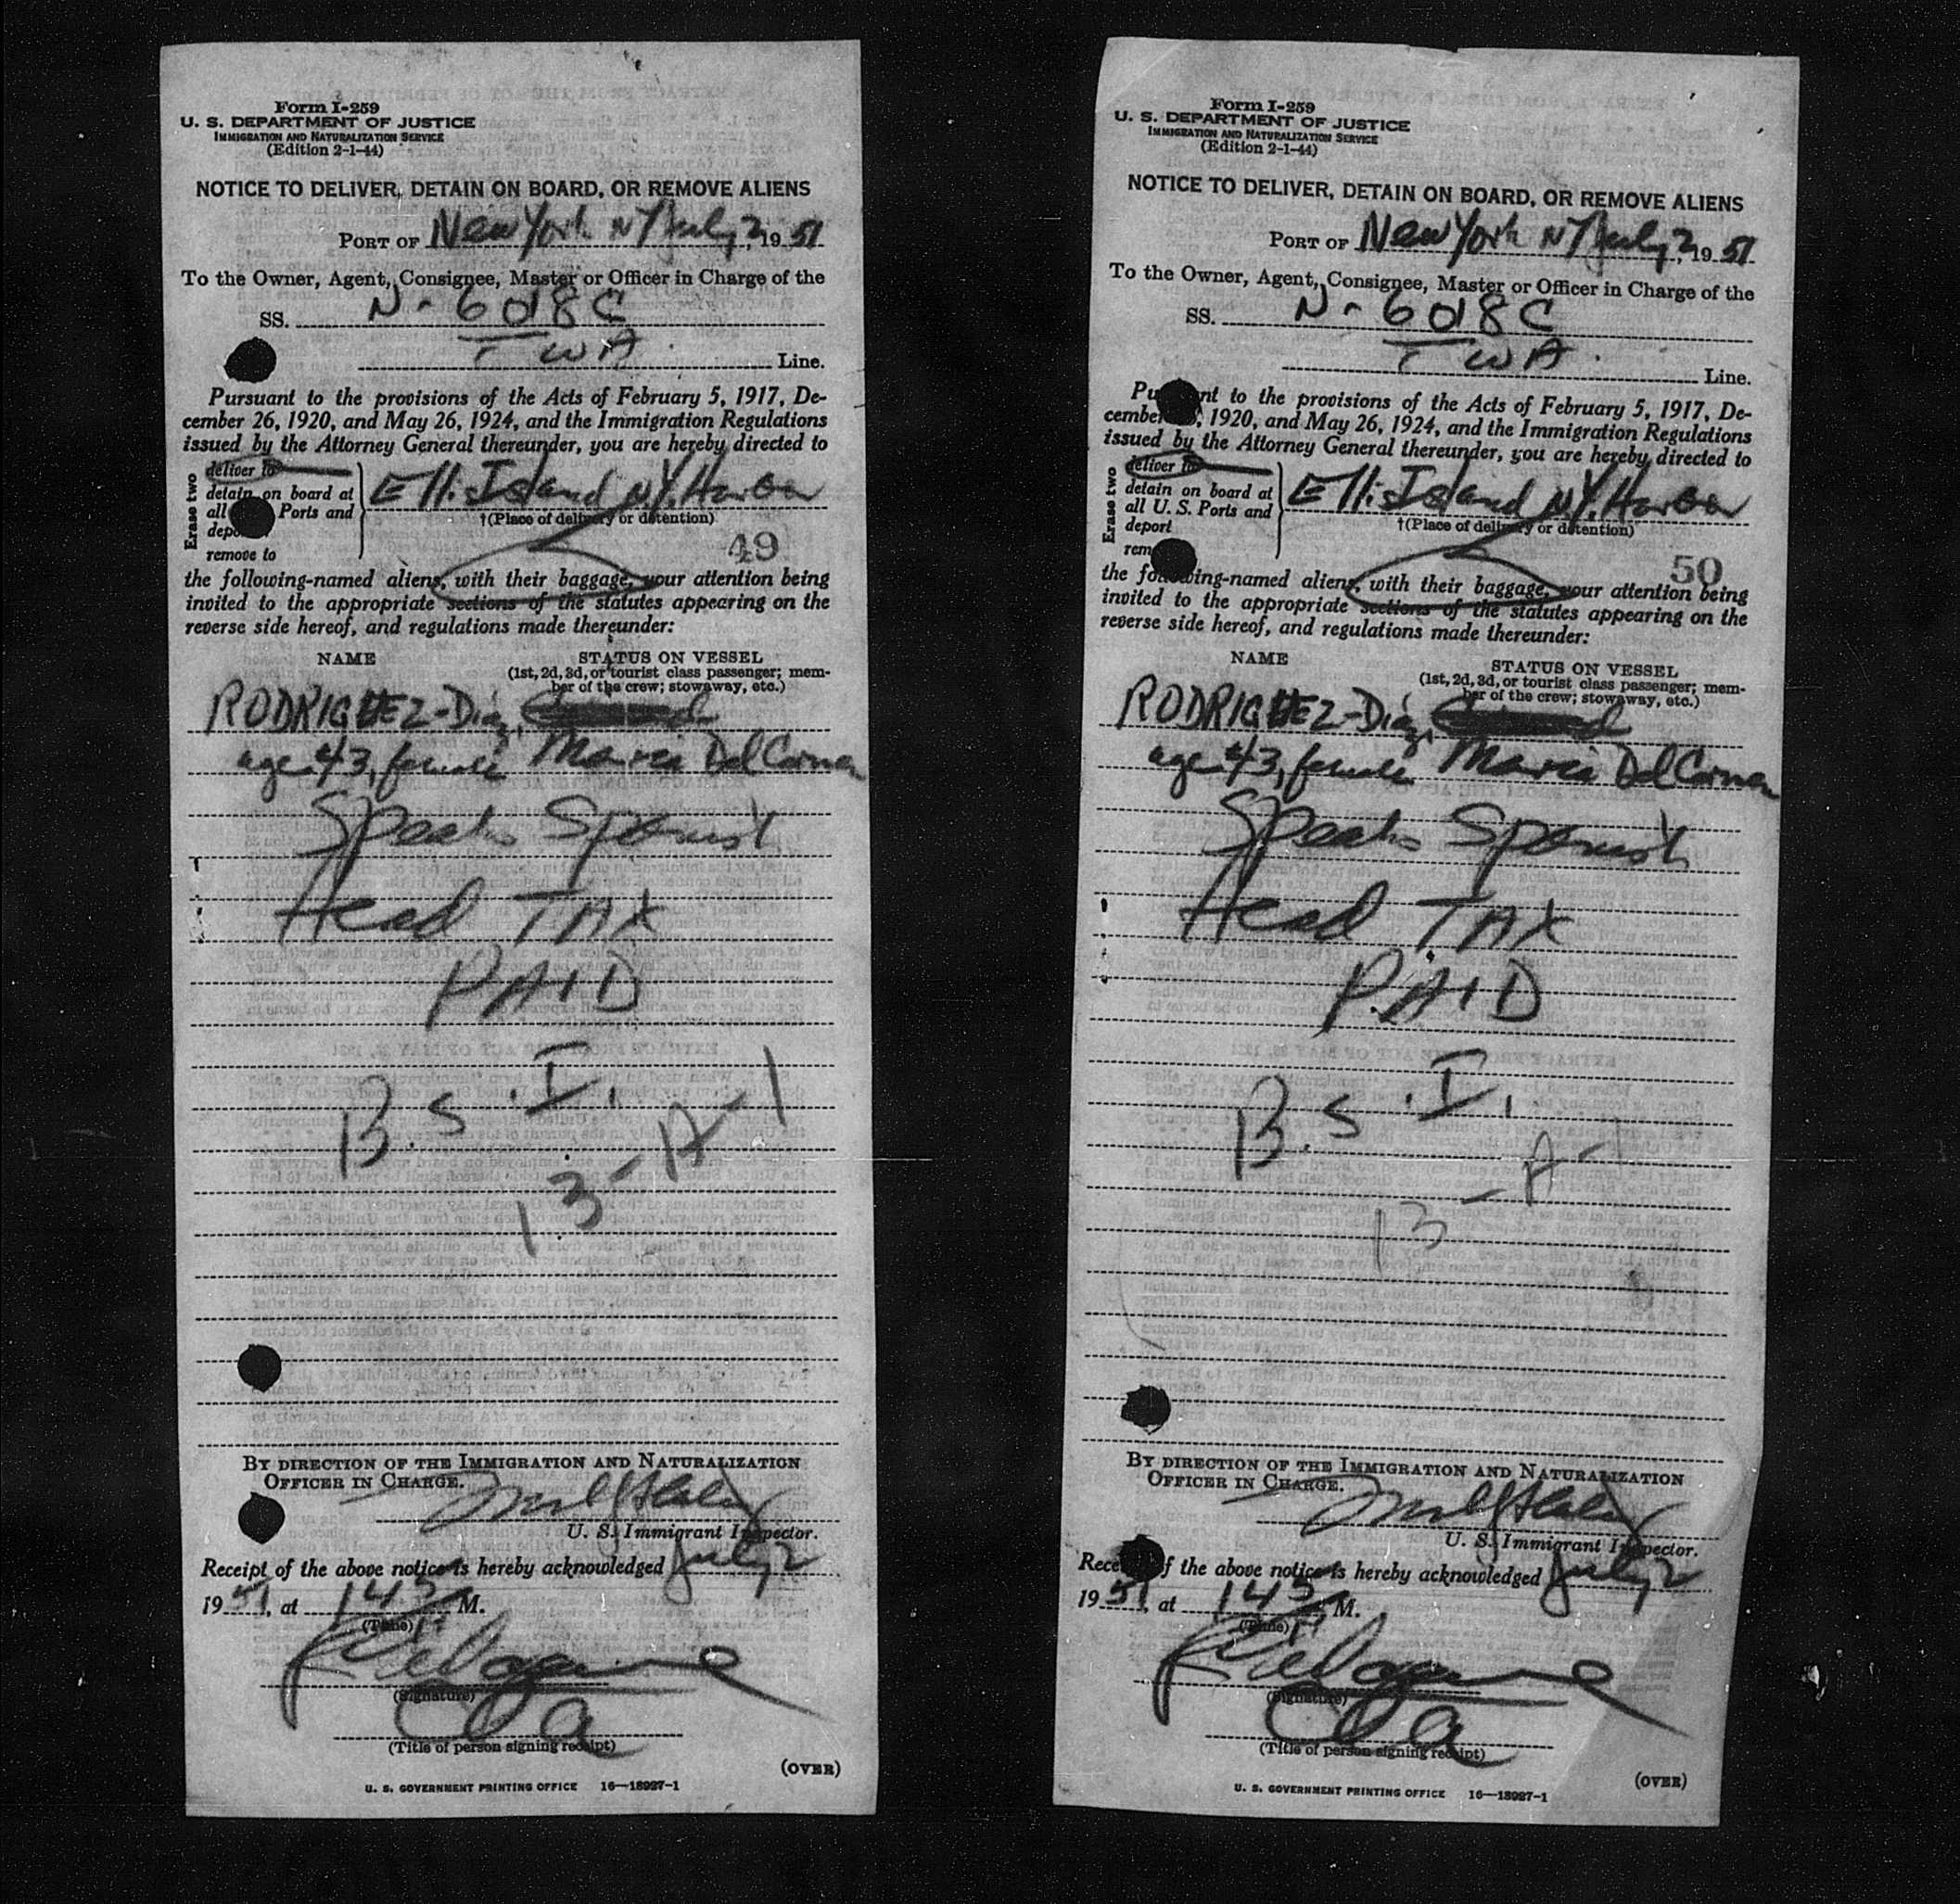 Form I-259
U. S. DEPARTMENT OF JUSTICE
IMMIGRATION AND NATURALIZATION SERVICE
(Edition 2-1-44)
NOTICE TO DELIVER, DETAIN ON BOARD, OR REMOVE ALIENS
PORT OF New York NY July 2, 19 51
To the Owner, Agent, Consignee, Master or Officer in Charge of the
SS. N-6018C
TWA Line.
Pursuant to the provisions of the Acts of February 5, 1917, De-
cember 26, 1920, and May 26, 1924, and the Immigration Regulations
issued by the Attorney General thereunder, you are hereby directed to
Erase two
deliver to
detain on board at
all Ports and
remove to
Ellis Island N.Y. Harbor
†(Place of delivery or detention)
49
the following-named aliens, with their baggage, your attention being
invited to the appropriate sections of the statutes appearing on the
reverse side hereof, and regulations made thereunder:
NAME STATUS ON VESSEL
(1st, 2d, 3d, or tourist class passenger; mem-
ber of the crew; stowaway, etc.)
RODRIGUEZ-Diaz,
age 43, female Maria Del Carmen
Speaks Spanish
Head TAX
PAID
B.S.I.
13-A-1
BY DIRECTION OF THE IMMIGRATION AND NATURALIZATION
OFFICER IN CHARGE.
U. S. Immigrant Inspector.
Receipt of the above notice is hereby acknowledged July 2
19 51, at 145 M.
(Time)
(Signature)
(Title of person signing receipt)
(OVER)
U. S. GOVERNMENT PRINTING OFFICE 16—18927-1
Form I-259
U. S. DEPARTMENT OF JUSTICE
IMMIGRATION AND NATURALIZATION SERVICE
(Edition 2-1-44)
NOTICE TO DELIVER, DETAIN ON BOARD, OR REMOVE ALIENS
PORT OF New York NY July 2, 19 51
To the Owner, Agent, Consignee, Master or Officer in Charge of the
SS. N-6018C
TWA Line.
to the provisions of the Acts of February 5, 1917, De-
cember , 1920, and May 26, 1924, and the Immigration Regulations
issued by the Attorney General thereunder, you are hereby directed to
Erase two
deliver to
detain on board at
all U. S. Ports and
deport
Ellis Island N.Y. Harbor
†(Place of delivery or detention)
50
the following-named aliens, with their baggage, your attention being
invited to the appropriate sections of the statutes appearing on the
reverse side hereof, and regulations made thereunder:
NAME STATUS ON VESSEL
(1st, 2d, 3d, or tourist class passenger; mem-
ber of the crew; stowaway, etc.)
RODRIGUEZ-Diaz,
age 43, female Maria Del Carmen
Speaks Spanish
Head TAX
PAID
B.S.I.
13-A-1
BY DIRECTION OF THE IMMIGRATION AND NATURALIZATION
OFFICER IN CHARGE.
U. S. Immigrant Inspector.
of the above notice is hereby acknowledged July 2
19 51, at 145 M.
(Time)
(Signature)
(Title of person signing receipt)
(OVER)
U. S. GOVERNMENT PRINTING OFFICE 16—18927-1